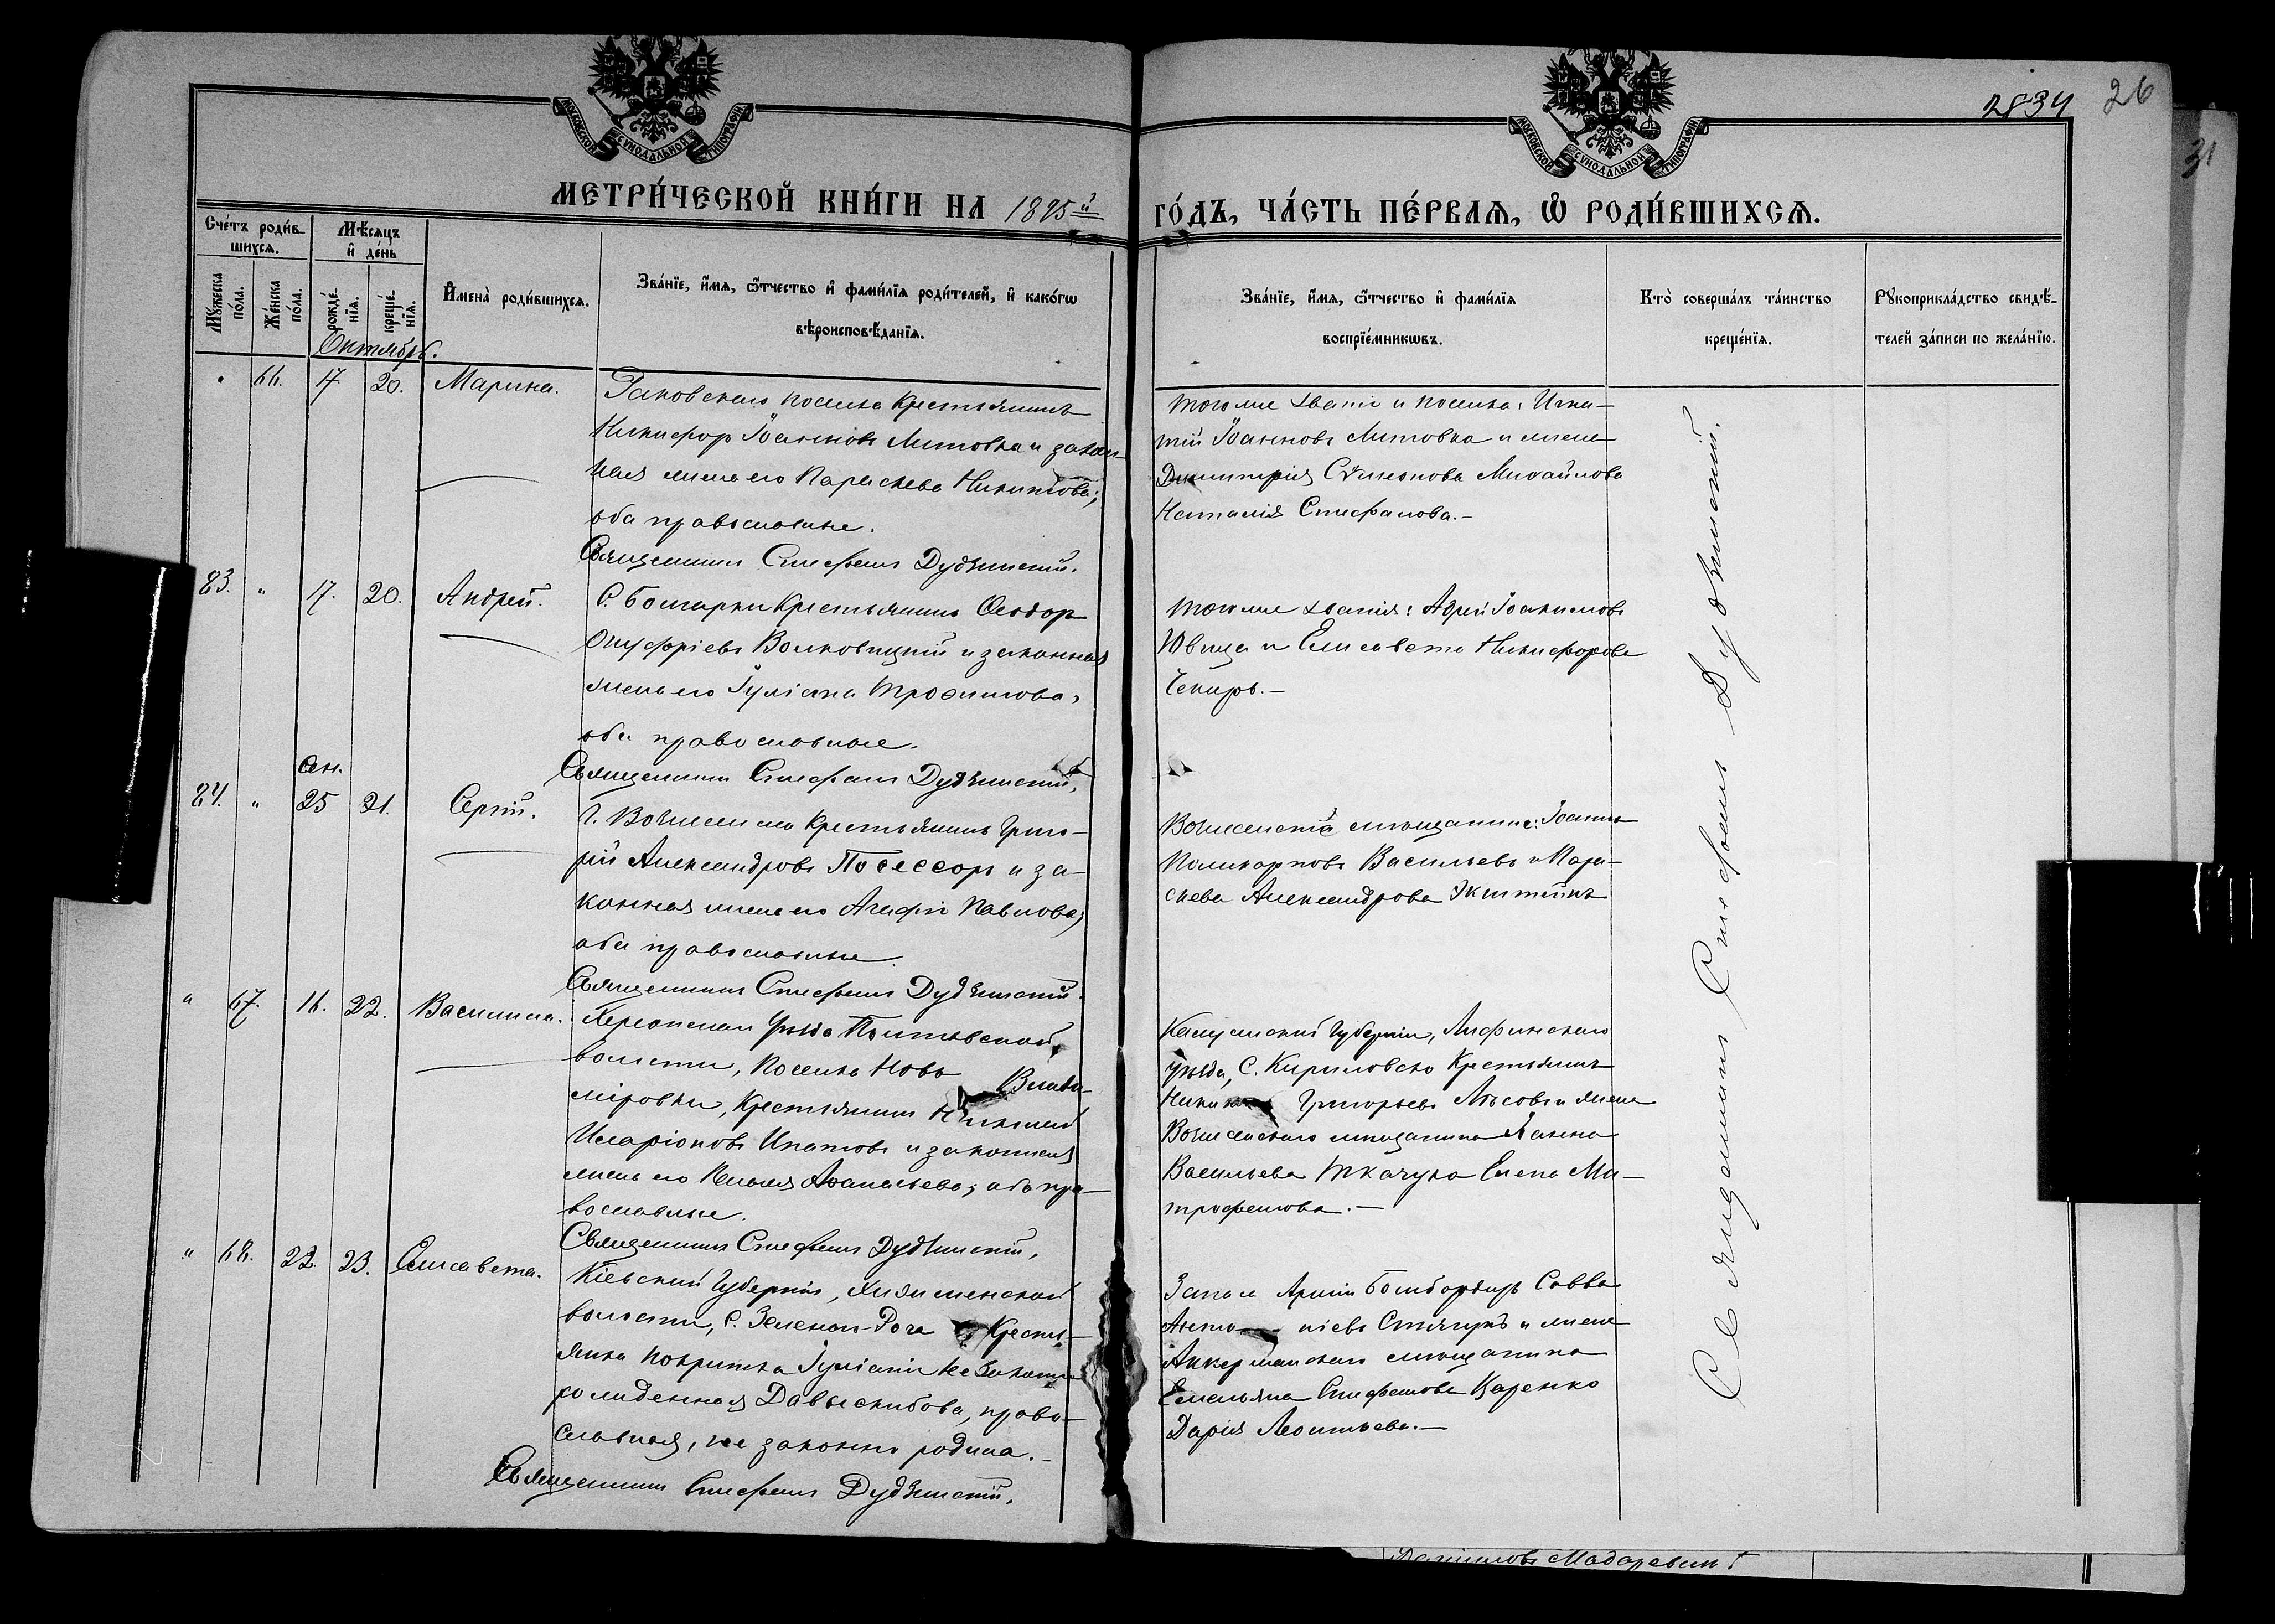 2834 26
31
МОСКОВСКОЙ СѴНОДАЛЬНОЙ ТИПОГРАФІИ
МОСКОВСКОЙ СѴНОДАЛЬНОЙ ТИПОГРАФІИ
МЕТРИ́ЧЕСКОЙ КНИ́ГИ НА 1895й ГО́ДЪ, ЧА́СТЬ ПЕ́РВАЯ, Ѡ РОДИ́ВШИХСЯ.
Сче́тъ роди́в-
шихся.
Мѣ́сяцъ
и҆ де́нь
Мꙋ́жеска по́ла.
Же́нска по́ла.
рожде́-нїя.
креще́-нїя.
И҆мена̀ роди́вшихся.
Зва́нїе, и҆́мя, ѻ҆́тчество и҆ фами́лїя роди́телей, и҆ како́гѡ
вѣроисповѣ́данїя.
Зва́нїе, и҆́мя, ѻ҆́тчество и҆ фами́лїя
воспрїе́мникѡвъ.
Кто̀ соверша́лъ та́инство
креще́нїя.
Рꙋкоприкла́дство свидѣ́-
телей за́писи по жела́нїю.
Октябрь.
" 66. 17. 20. Марина.
Раковскаго поселка Крестьянинъ
Никифор Іоанновъ Литовка и закон-
ная жена его Параскева Никитова;
оба православные.
Священникъ Стефанъ Дудзинскій.
Того же званія и поселка: Игна-
тій Іоанновъ Литовка и жена
Димитрія Михайлова
Наталія Стефанова.—
83. " 17. 20. Андрей.
С. Болгарки Крестьянинъ Ѳеодор
Онуфріевъ Волковицкій и законная
жена его Іуліана Трофимова,
оба православные.
Священникъ Стефанъ Дудзинскій.
Того же званія: Іоакимовъ
и Елисавета Никифорова
Чекиръ.—
84. " Сен. 25 21. Сергій.
Г. Вознесенска Крестьянинъ Григо-
рій Александровъ Посессоръ и за-
конная жена его Агафія Павлова;
оба православные.
Священникъ Стефанъ Дудзинскій.
Вознесенскіе мѣщанине: Іоаннъ
Поликарповъ Васильевъ и Пара-
скева Александрова Экштейнъ
" 67. 16. 22. Василиса.
Херсонскаго уѣзда Полтавской
волости, поселка Ново Влади-
міровки, Крестьянинъ
Иларіоновъ Ипатовъ и законная
жена его Аѳанасьева; оба пра-
вославные.
Священникъ Стефанъ Дудзинскій.
Калужской Губерніи,
уѣзда, С. Кириловско Крестьянинъ
Григорьевъ Лѣсовъ и жена
Вознесенскаго мѣщанина Іоанна
Васильева Ткачука Елена Ми-
трофанова.—
" 68. 22. 23. Елисавета.
Кіевской Губерніи,
волости, С. Зеленая-Рога Кресть-
янка покритка Іуліанія незаконно
рожденная Давыскибова, право-
славная, не законно родила.—
Священникъ Стефанъ Дудзинскій.
Запаса Арміи Бомбордиръ Савва
и жена
Аккерманскаго мѣщанина
Емельяна Стефанова
Дарія Леонтьева.—
Священникъ Стефанъ Дудзинскій.